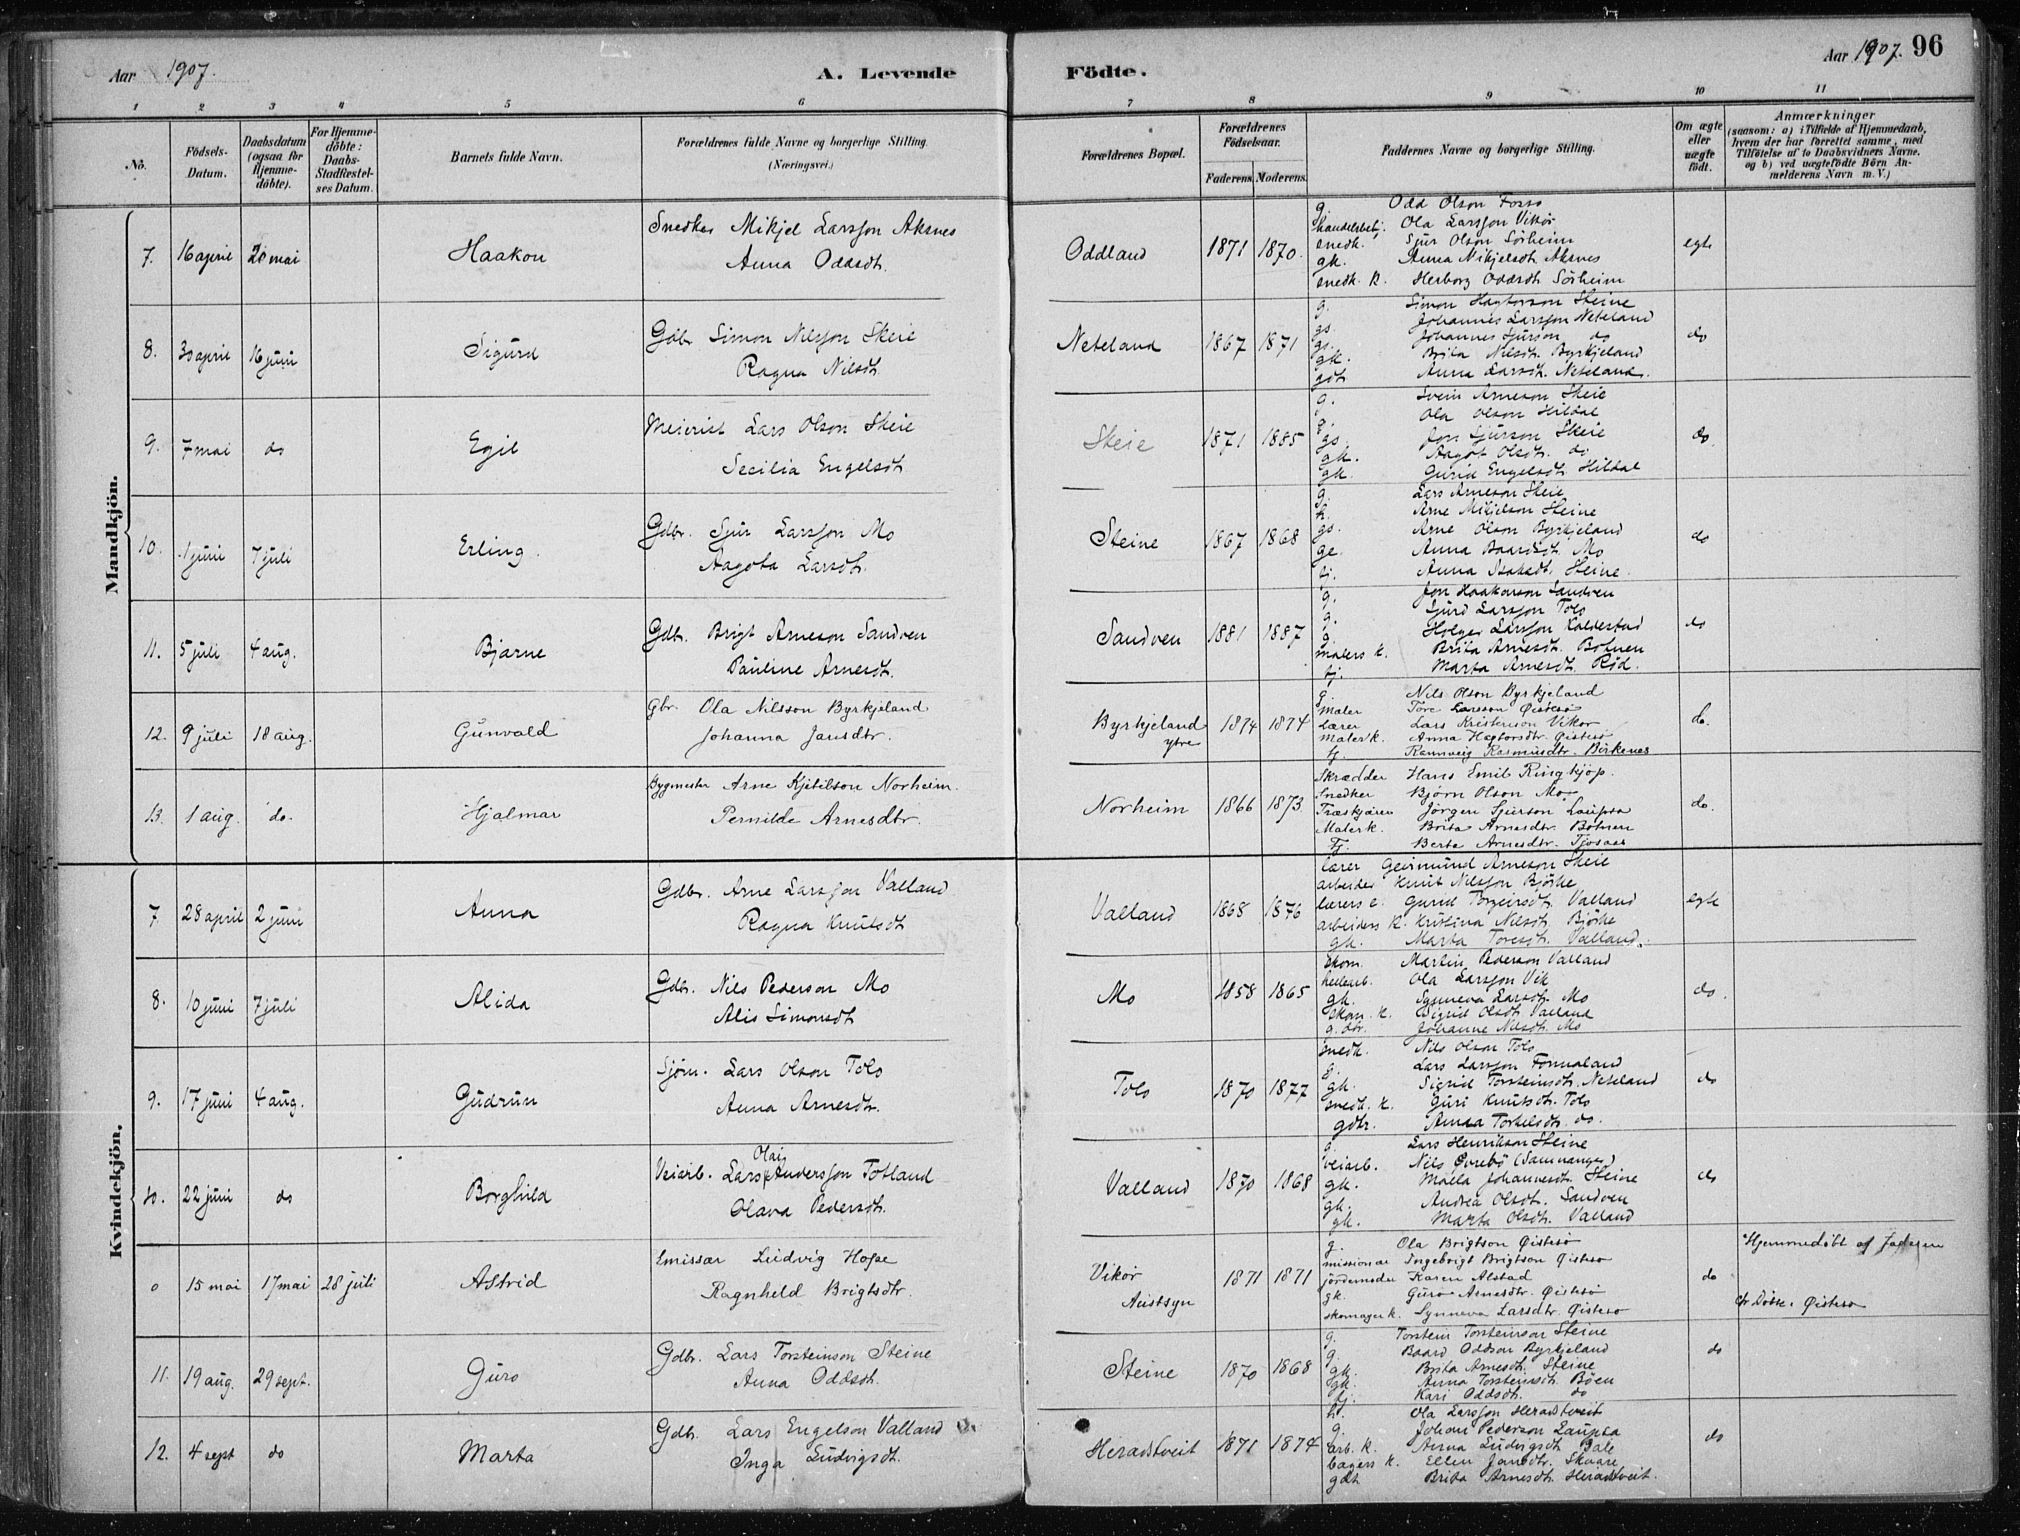 Aar 1907. A. Levende Födte. Aar 1907. 96
1 2 3 4 5 6 7 8 9 10 11
No. Födsels-Datum. Daabsdatum (ogsaa for Hjemmedöbte). For Hjemmedöbte: Daabs-Stadfestelses Datum. Barnets fulde Navn. Forældrenes fulde Navne og borgerlige Stilling (Næringsvei.) Forældrenes Bopæl. Forældrenes Födselsaar. Faderens. Moderens. Faddernes Navne og borgerlige Stilling. Om ægte eller uægte födt. Anmærkninger (saasom: a) i Tilfælde af Hjemmedaab, hvem der har forrettet samme, med Tilföielse af to Daabsvidners Navne, og b) ved uægtefödte Börn Anmelderens Navn m. V.)
Mandkjön.
7. 16 april 20 mai Haakon Snedker Mikjel Larsson Aksnes
Anna Oddsdt. Oddland 1871 1870. egte
g. Odd Olson Fosso
handelsbetj. Ola Larsson Vikör
snedk. Sjur Olson Sörheim
gk. Anna Mikjelsdt Aksnes
snedk. k. Herborg Oddsdt Sörheim
8. 30 april 16 juni Sigurd Gdb. Simon Nilsson Skeie
Ragna Nilsdt. Neteland 1867 1871 do
g. Simon Hagtorson Steine
gs. Johannes Larsson Neteland
gs. Johannes Sjurson do
gk. Brita Nilsdt. Byrkjeland
gdt Anna Larsdt. Neteland.
9. 7 mai do Egil Meierist Lars Olson Skeie
Secilia Engelsdt Skeie 1871 1885 do.
g. Svein Arneson Skeie
g. Ola Olson Hildal
gs. Jon Sjurson Skeie
gk. Aagot Olsdt. do
gk. Gurid Engelsdt Hildal
10. 1 juni 7 juli Erling. Gdbr. Sjur Larsson Mo
Aagota Larsdt. Steine 1867 1868 do
g. Lars Arneson Skeie
h. Arne Mikjelson Steine
gs. Arne Olson Byrkjeland
ge. Anna Baardsdt. Mo
tj. Anna Isaksdt. Steine.
11. 5 juli 4 aug. Bjarne Gdb. Brigt Arneson Sandven
Pauline Arnesdt. Sandven 1881 1887 do
g. Jon Haakonson Sandven
g. Sjurd Larsson Tolo
g. Holger Larsson Kaldestad
malers k. Brita Arnesdt. Botnen
tj. Marta Arnesdt. Röd.
12. 9 juli 18 aug. Gunvald Gbr. Ola Nilsson Byrkjeland
Johanna Jansdtr. Byrkjeland ytre 1874 1874 do.
g. Nils Olson Byrkjeland
Maler Tore Larsson Öistesö
Lærer Lars Kristenson Vikör
Maler k. Anna Hagtorsdtr. Öistesö
tj. Rannveig Rasmusdtr. Birkenes
13. 1 aug. do. Hjalmar Bygmester Arne Kjetilson Norheim.
Pernilde Arnesdtr. Norheim 1866 1873 do.
Skrædder Hans Emil Ringkjöp.
Snedker Björn Olson Mo
Træskjærer Jörgen Sjurson Laupsa
Maler k. Brita Arnesdtr. Botnen
Tj. Berta Arnesdtr. Tjosaas
Kvindekjön.
7 28 april 2 juni Anna Gdbr. Arne Larsson Valland
Ragna Knutsdt Valland 1868 1876 egte
lærer Geirmund Arneson Skeie
arbeider Knut Nilsson Björke
lærers e. Gurid Torgeirsdt. Valland
arbeiders k. Kristina Nilsdt. Björke
gk. Marta Toresdt. Valland.
8. 10 juni 7 juli Alida Gdb. Nils Pederson Mo
Alis Simonsdt Mo 1858 1865 do.
skom. Martin Pederson Valland
Ola Larsson Vik
gk. Synneva Larsdt. Mo
skom. k. Sigrid Olsdt. Valland
g. dtr. Johanne Nilsdt. Mo
9. 17 juni 4 aug. Gudrun Sjöm. Lars Olson Tolo
Anna Arnesdtr. Tolo 1870 1877 do
snedk. Nils Olson Tolo
g. Lars Larsson Fonnaland
gk. Sigrid Torsteinsdt. Neteland
snedk. k. Guri Knutsdt. Tolo
gdtr. Anna Torkelsdt. do.
10. 22 juni do Borghild Veiarb. Lars Olai Andersson Totland
Olava Pedersdt. Valland 1870 1868 do
g. Lars Henrikson Steine
veiarb. Nils Övrebö (Samnanger)
gk. Maela Johannesdt. Steine
gk. Andrea Olsdt. Sandven
gk. Marta Olsdt. Valland
0 15 mai 17 mai 28 juli Astrid Emissær Ludvig Hope
Ragnheld Brigtsdtr. Vikör Austsyn 1871 1871 do
g. Ola Brigtson Öistesö
missionær Ingebrigt Brigtson Öistesö
jordemoder Karen Alstad
gk. Guro Arnesdtr. Öistesö
skomager k. Synneva Larsdtr. Öistesö
Hjemmedöbt af Faderen
Öistesö
11. 19 aug. 29 sept. Guro Gdbr. Lars Torsteinson Steine
Anna Oddsdt. Steine 1870 1868 do
g. Torstein Torsteinson Steine
g. Baard Oddson Byrkjeland
gk. Brita Arnesdt. Steine
gk. Anna Torsteinsdt. Böen
tj. Kari Oddsdt. do
12. 4 sept do Marta Gdb. Lars Engelson Valland
Inga Ludvigsdt. Heradstveit 1871 1874 do
h. Ola Larsson Heradstveit
g. Johan Pederson Laupsa
arb. k. Anna Ludvigsdt Dale
bagers k. Ellen Jansdtr. Skaare
gdt Brita Arnesdt. Heradstveit.